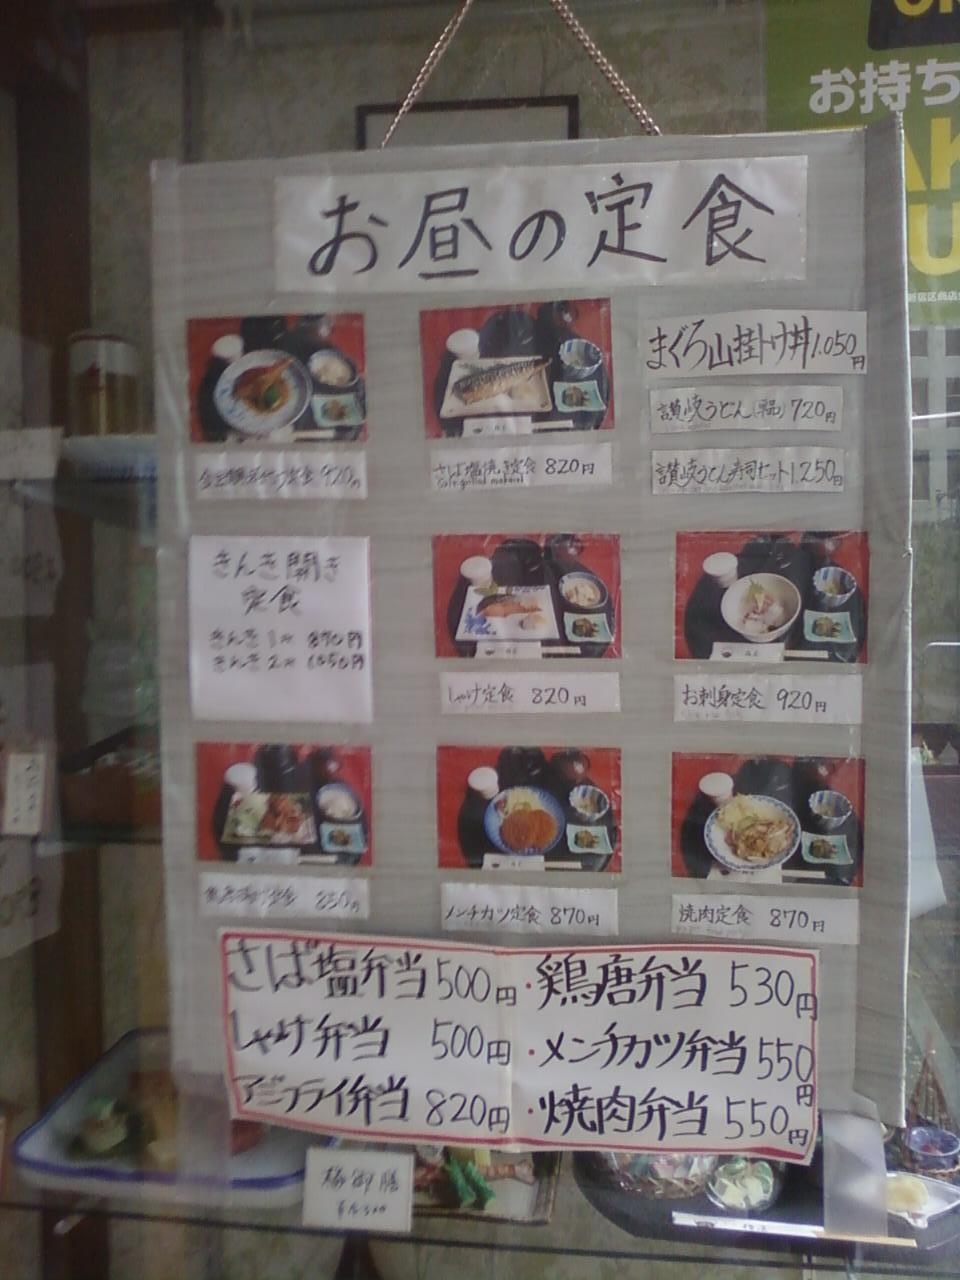 お持ち
お昼の定食
まぐろ山掛トロ丼1,050円
讃岐うどん(単品)720円
讃岐うどん寿司セット1,250円
定食 920円
さば塩焼き定食 820円
きんき開き
定食
きんき1枚 870円
きんき2枚 1050円
しゃけ定食 820円
お刺身定食 920円
定食 850円
メンチカツ定食 870円
焼肉定食 870円
さば塩弁当 500円
・鶏唐弁当 530円
しゃけ弁当 500円
・メンチカツ弁当 550円
アジフライ弁当 820円
・焼肉弁当 550円
御膳